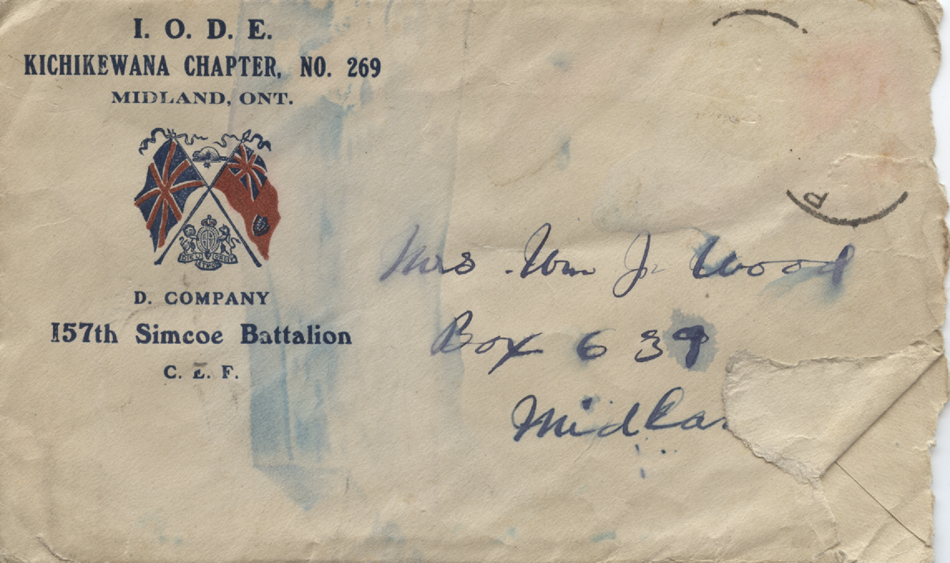 I. O. D. E.
KICHIKEWANA CHAPTER, NO. 269
MIDLAND, ONT.
D. COMPANY
157th Simcoe Battalion
C. E. F.
Mrs. Wm J. Wood
Box 639
Midlan